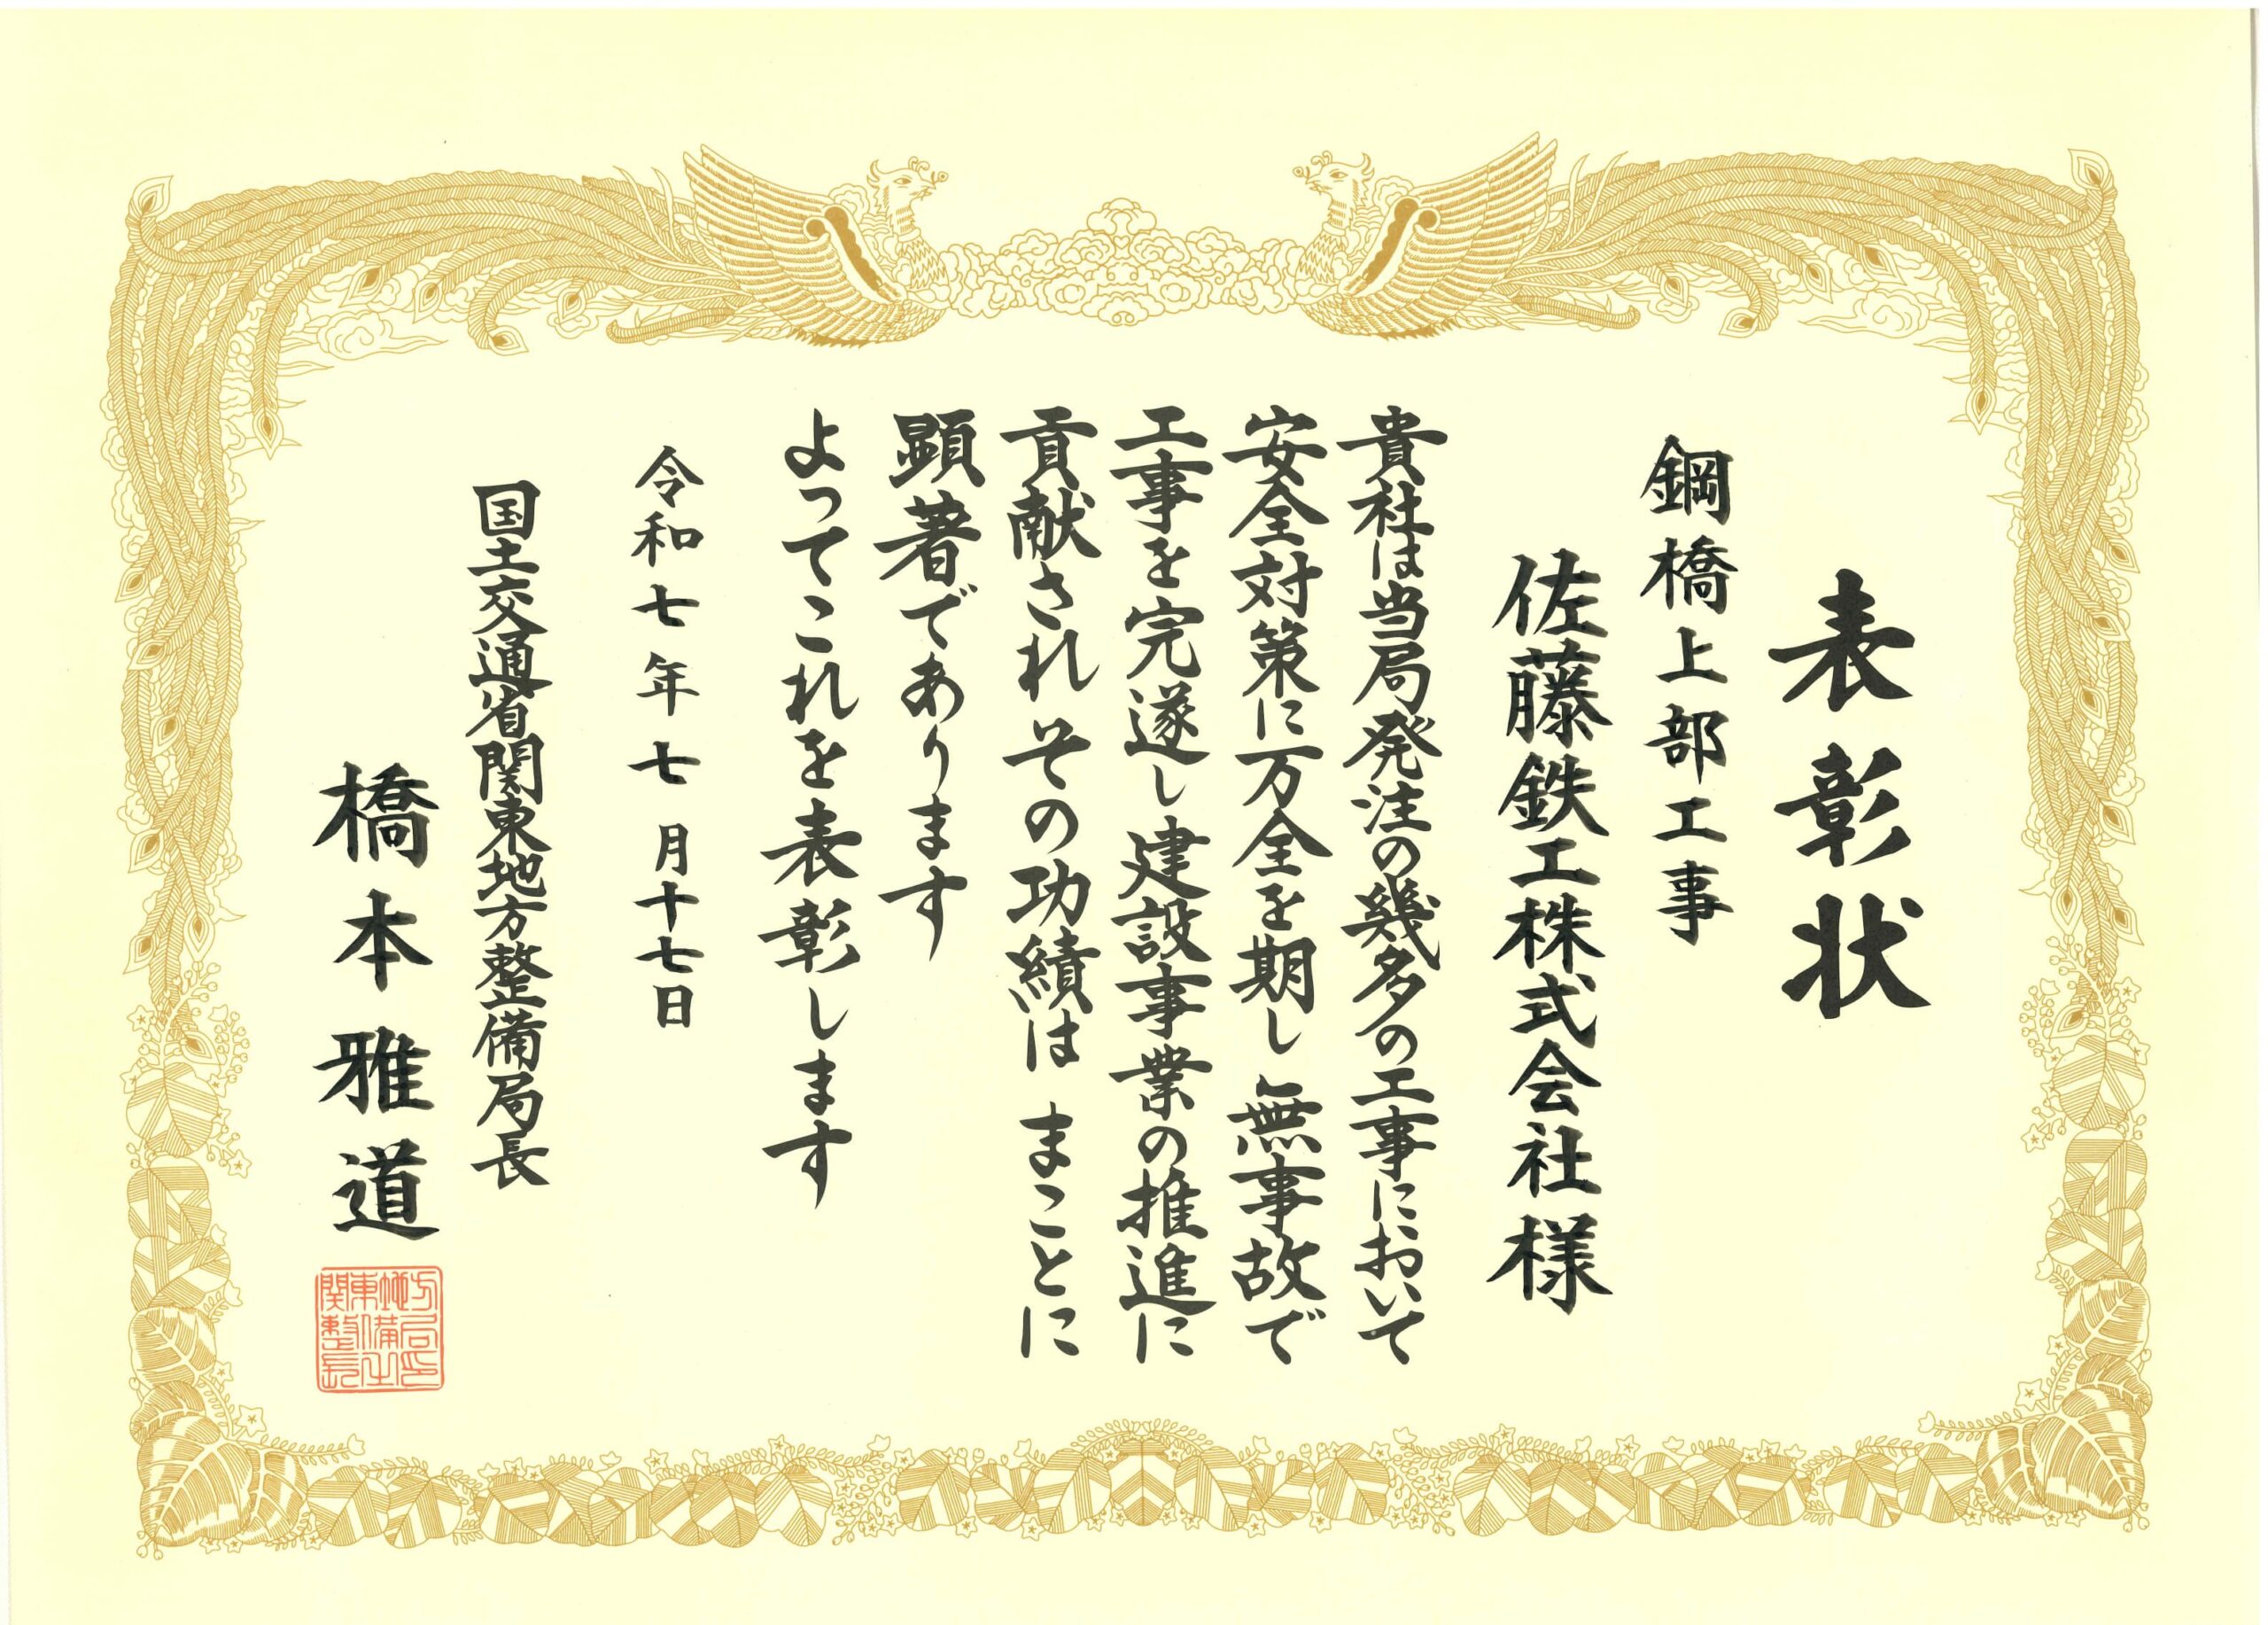 表彰状
鋼橋上部工事
佐藤鉄工株式会社様
貴社は当局発注の幾多の工事において
安全対策に万全を期し無事故で
工事を完遂し建設事業の推進に
貢献されその功績は まことに
顕著であります
よってこれを表彰します
令和七年七月十七日
国土交通省関東地方整備局長
橋本雅道